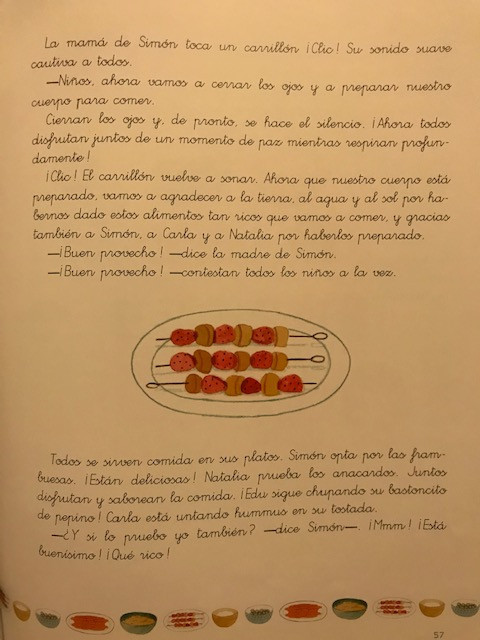 La mamá de Simón toca un carrillón ¡Clic! Su sonido suave
cautiva a todos.
—Niños, ahora vamos a cerrar los ojos y a preparar nuestro
cuerpo para comer.
Cierran los ojos y, de pronto, se hace el silencio. ¡Ahora todos
disfrutan juntos de un momento de paz mientras respiran profun-
damente!
¡Clic! El carrillón vuelve a sonar. Ahora que nuestro cuerpo está
preparado, vamos a agradecer a la tierra, al agua y al sol por ha-
bernos dado estos alimentos tan ricos que vamos a comer, y gracias
también a Simón, a Carla y a Natalia por haberlos preparado.
—¡Buen provecho! —dice la madre de Simón.
—¡Buen provecho! —contestan todos los niños a la vez.
Todos se sirven comida en sus platos. Simón opta por las fram-
buesas. ¡Están deliciosas! Natalia prueba los anacardos. Juntos
disfrutan y saborean la comida. ¡Edu sigue chupando su bastoncito
de pepino! Carla está untando hummus en su tostada.
—¿Y si lo pruebo yo también? —dice Simón—. ¡Mmm! ¡Está
buenísimo! ¡Qué rico!
57